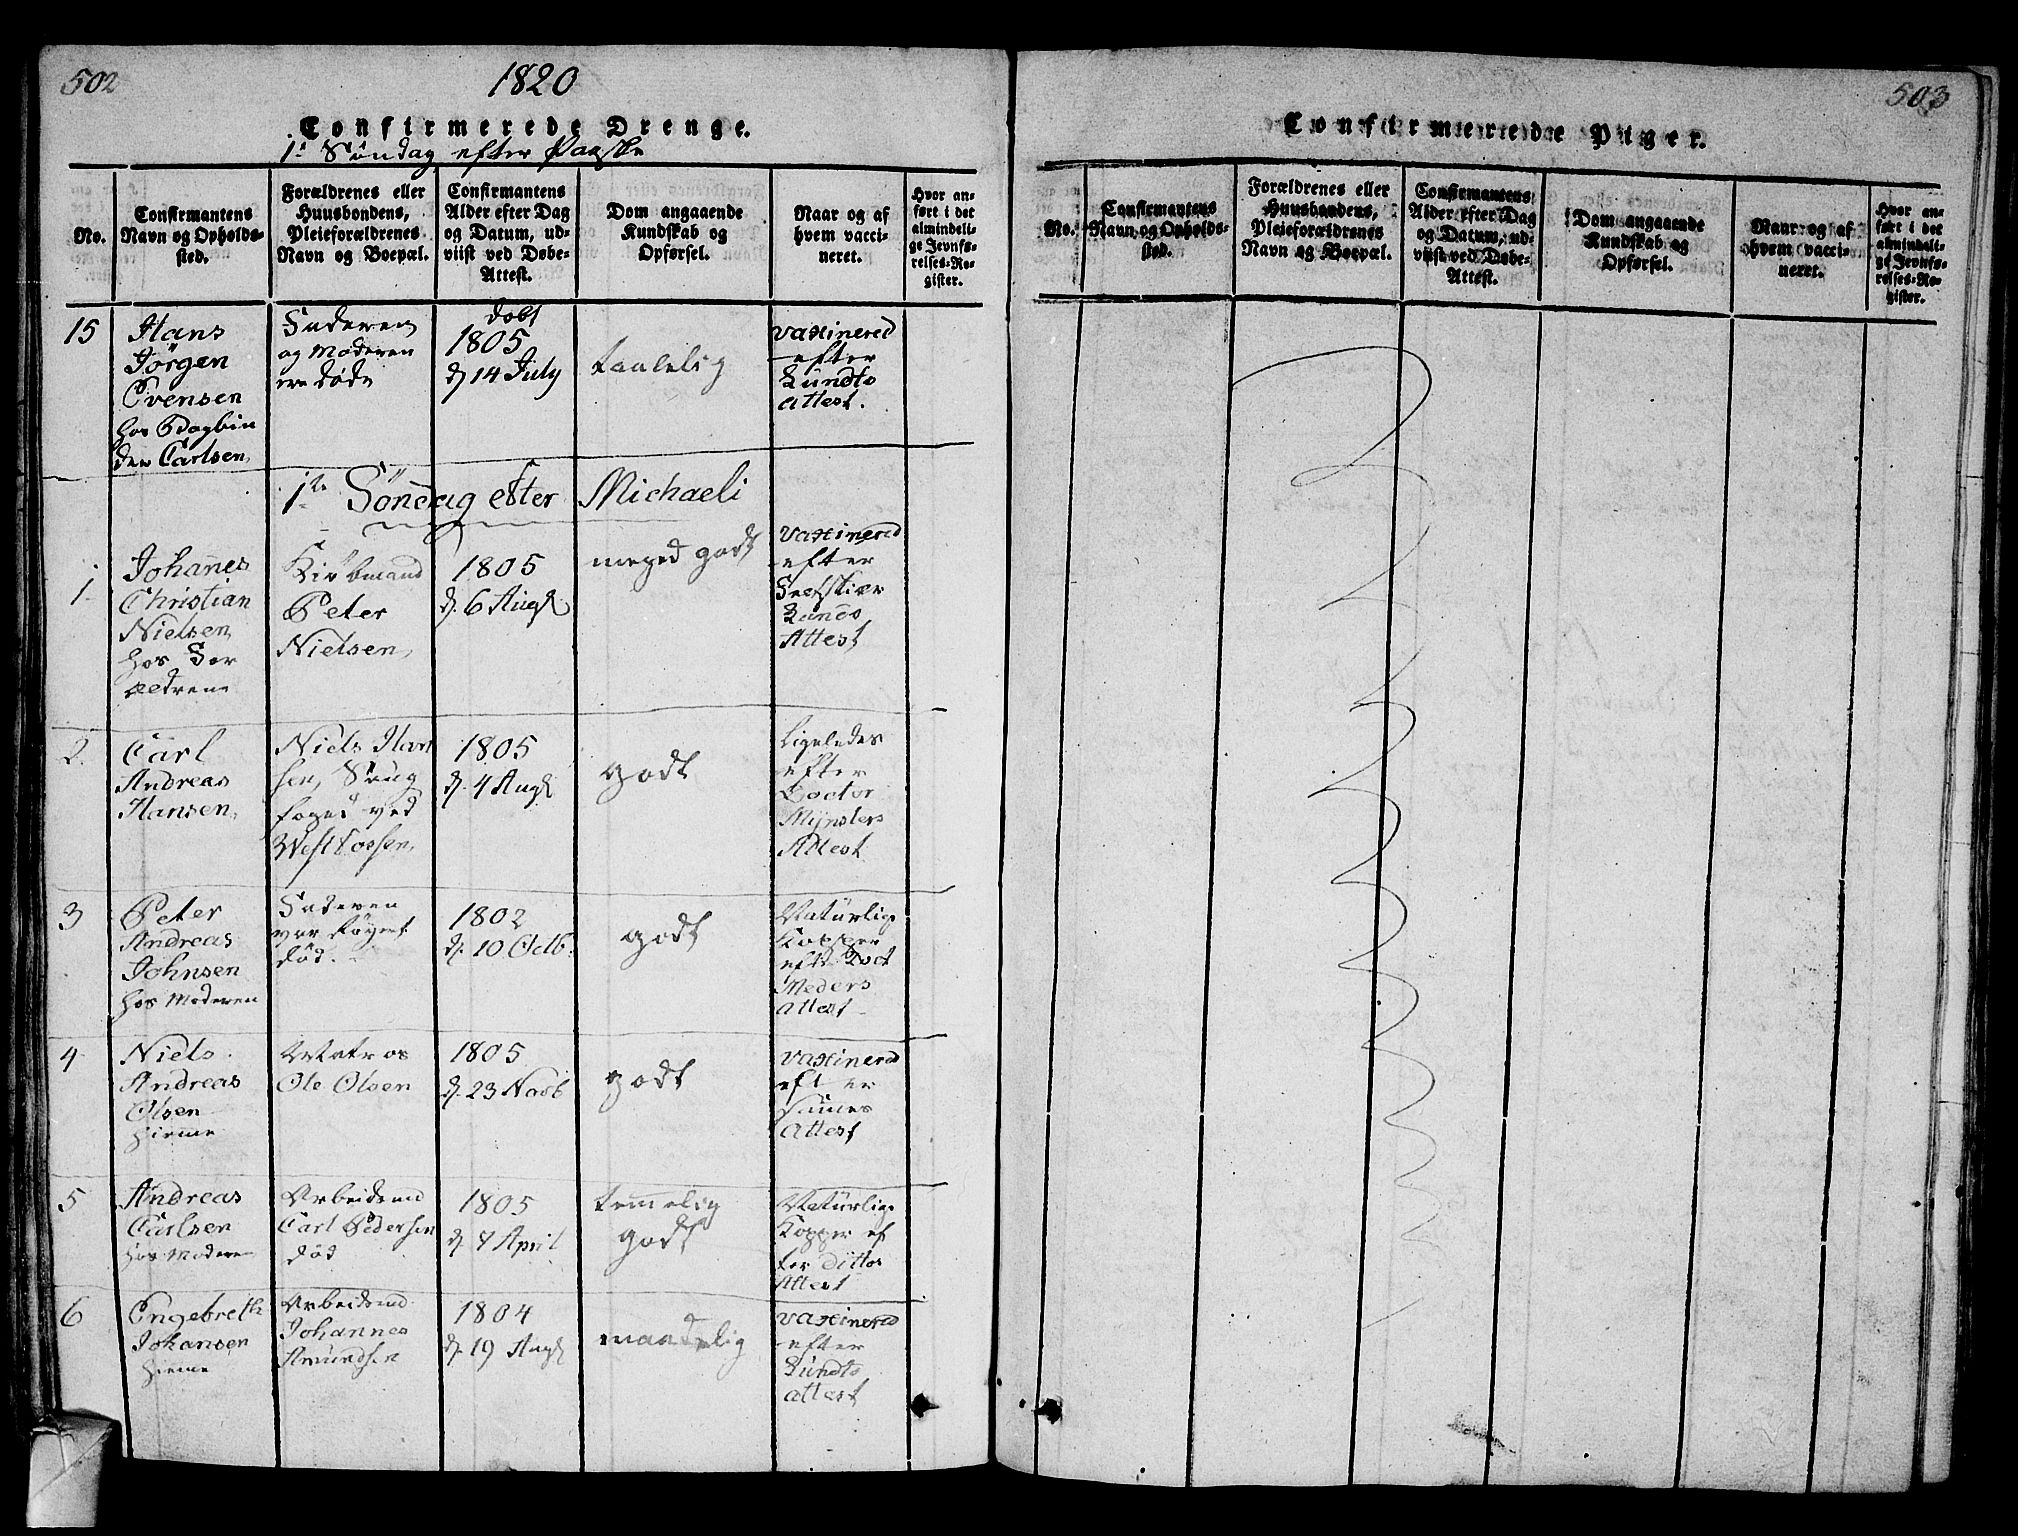 502
1820
Confirmerede Drenge.
1ste Søndag efter Paaske
No.
Confirmantens
Navn og Opholds-
sted.
Forældrenes eller
Huusbondens,
Pleieforældrenes
Navn og Boepæl.
Confirmantens
Alder efter Dag
og Datum, ud-
viist ved Døbe-
Attest.
Dom angaaende
Kundskab og
Opførsel.
Naar og af
hvem vacci-
neret.
Hvor an-
ført i det
almindeli-
ge Jevnfø-
relses-Re-
gister.
15
Hans
Jörgen
Evensen
hos Bogbin
der Carlsen,
Faderen
og Moderen
ere døde
døbt
1805
d 14 July
taalelig
vaxinered
efter
Lundts
attest.
1te Søndag efter Michaeli
1.
Johanes
Christian
Nielsen,
hos For
ældrene
Kiøbmand
Peter
Nielsen,
1805
d. 6 Augst
meged godt
vaxinered
efter
Lunds
Attest
2.
Carl
Andreas
Hansen,
Niels Han
sen,
foged ved
Vestfossen,
1805
d. 4 Augst
godt
Ligeledes
efter
Doctor
Mynsters
Attest
3
Peter
Andreas
Johnsen
hos Moderen
Faderen
død.
1802
d. 10 Octb.
godt
Naturlige
Kopper
efter Doct
Meders
attest
4
Niels
Andreas
Olsen
hieme
Matros
Ole Olsen
1805
d. 23 Novb
godt
vaxinered
efter
sammes
attest
5
Andreas
Carlsen
hos Moderen
Arbeidsmd
Carl Pedersen
død
1805
d. 7 April
temelig
godt
Naturlige
Kopper ef
ter dittos
Attest
6
Engebreth
Johansen
hieme
Arbeidsmd
Johannes
Amundsen
1804
d. 19 Augst
maadelig
vaxinered
efter
Lundts
attest
503
Confirmerede Piger.
No.
Confirmantens
Navn og Opholds-
sted.
Forældrenes eller
Huusbondens,
Pleieforældrenes
Navn og Boepæl.
Confirmantens
Alder efter Dag
og Datum, ud-
viist ved Døbe-
Attest.
Dom angaaende
Kundskab og
Opførsel.
Naar og af
hvem vacci-
neret.
Hvor an-
ført i det
almindeli-
ge Jevnfø-
relses-Re-
gister.